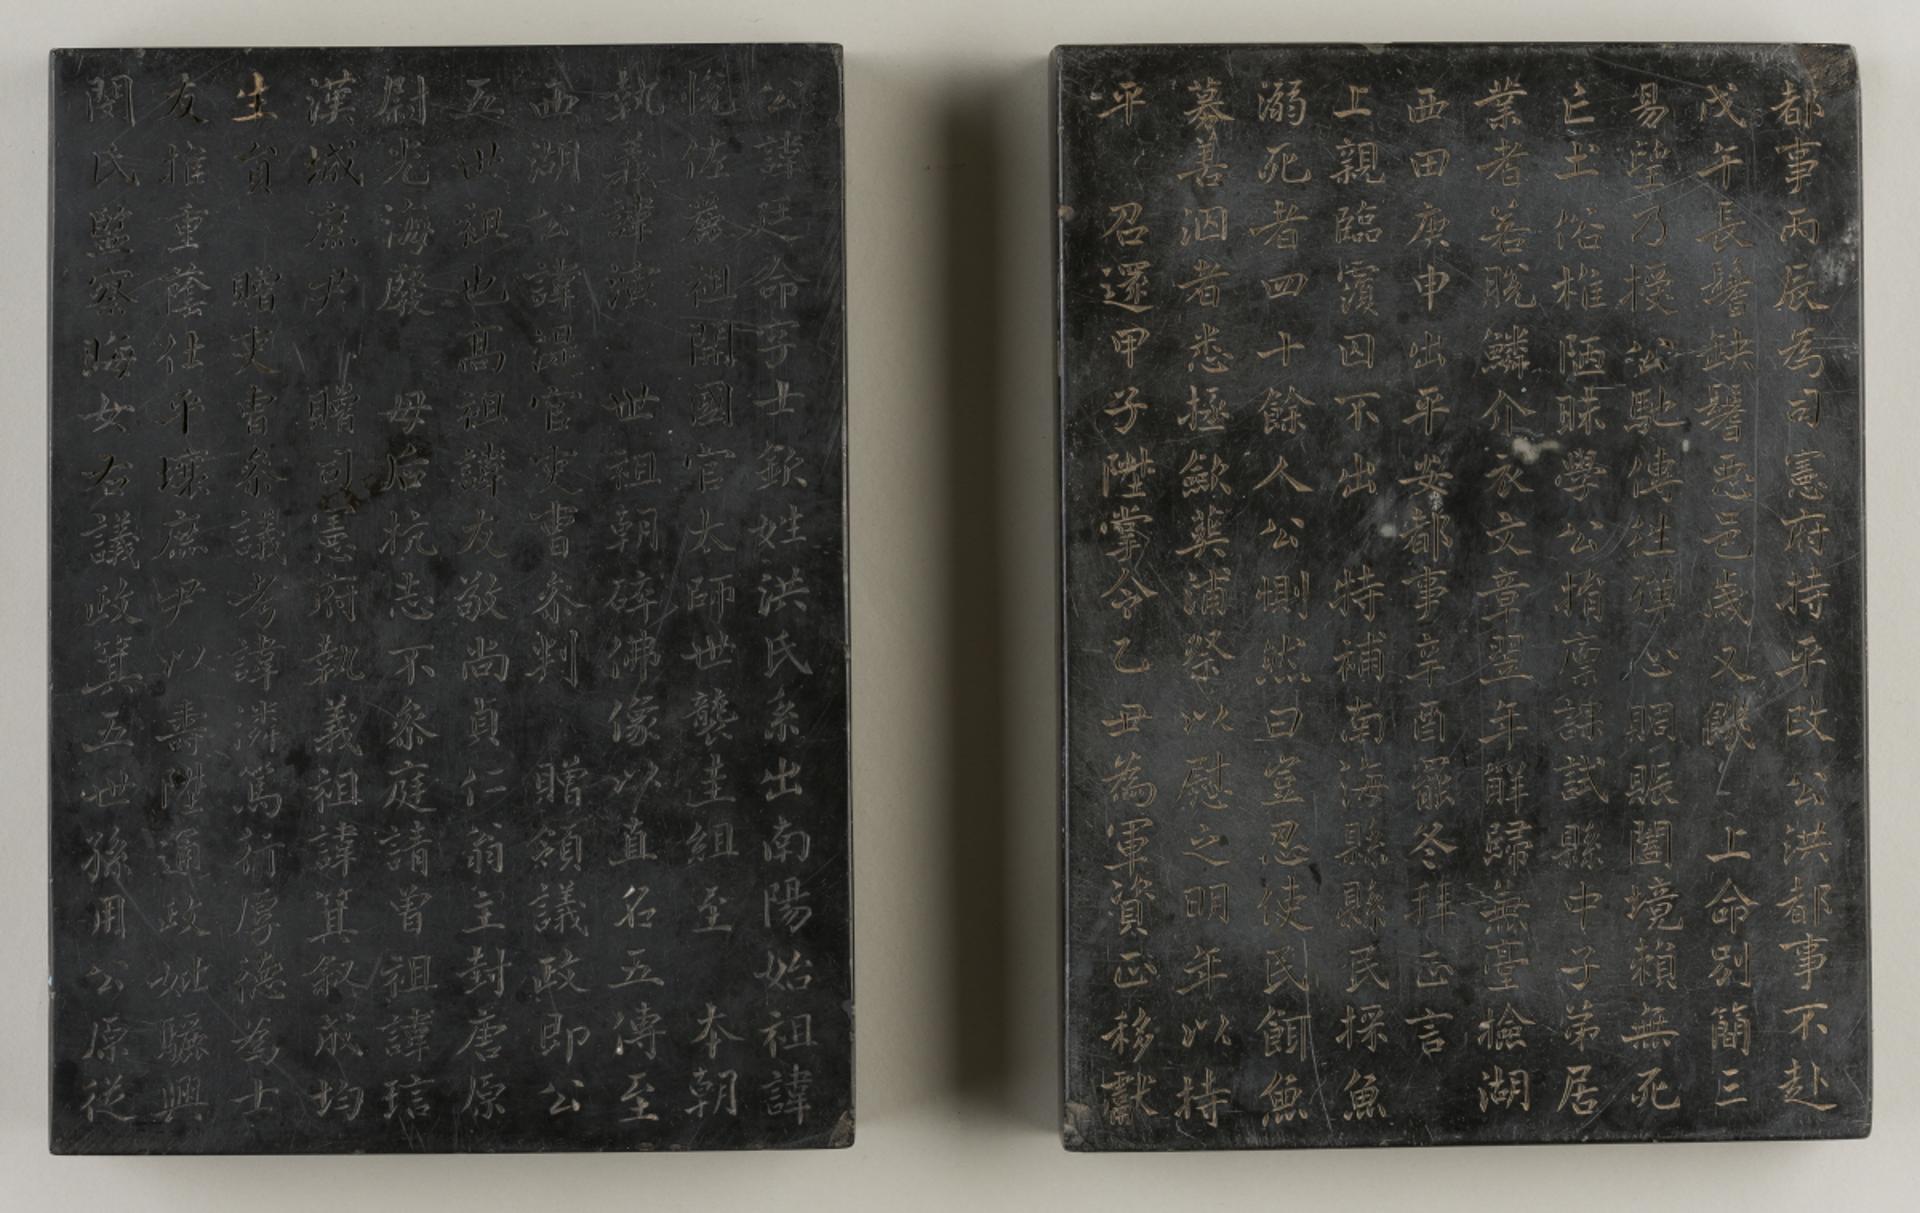 公諱廷命字士欽姓洪氏系出南陽始祖諱
悅佐麗祖開國官太師世襲圭組至 本朝
執義諱演 世祖朝碎佛像以直名五傳至
西湖公諱湜官吏曹叅判 贈領議政即公
五世祖也髙祖諱友敬尚貞仁翁主封唐原
尉光海廢 母后抗志不叅庭請曾祖諱琂
漢城庶尹 贈司憲府執義祖諱箕叙成均
生員 贈吏曹叅議考諱潾篤行厚德爲士
友推重蔭仕平壤庶尹以壽陞通政妣驪興
閔氏監察晦女右議政箕五世孫用公原従
都事丙辰爲司憲府持平改公洪都事不赴
戊午長鬐缺鬐惡邑歲又饑 上命別簡三
易望乃授公馳傳往殫心賙賑闔境賴無死
亡土俗椎陋昧學公捐廩課試縣中子弟居
業者若脫鱗介衣文章翌年解歸無臺撿湖
西田庚申出平安都事辛酉罷冬拜正言
上親臨囚不出 特補南海縣縣民採魚
溺死者四十餘人公惻然曰豈忍使民餌魚
募善泅者悉拯斂英浦祭以慰之明年以持
平 召還甲子陞掌令乙丑為軍資正移獻